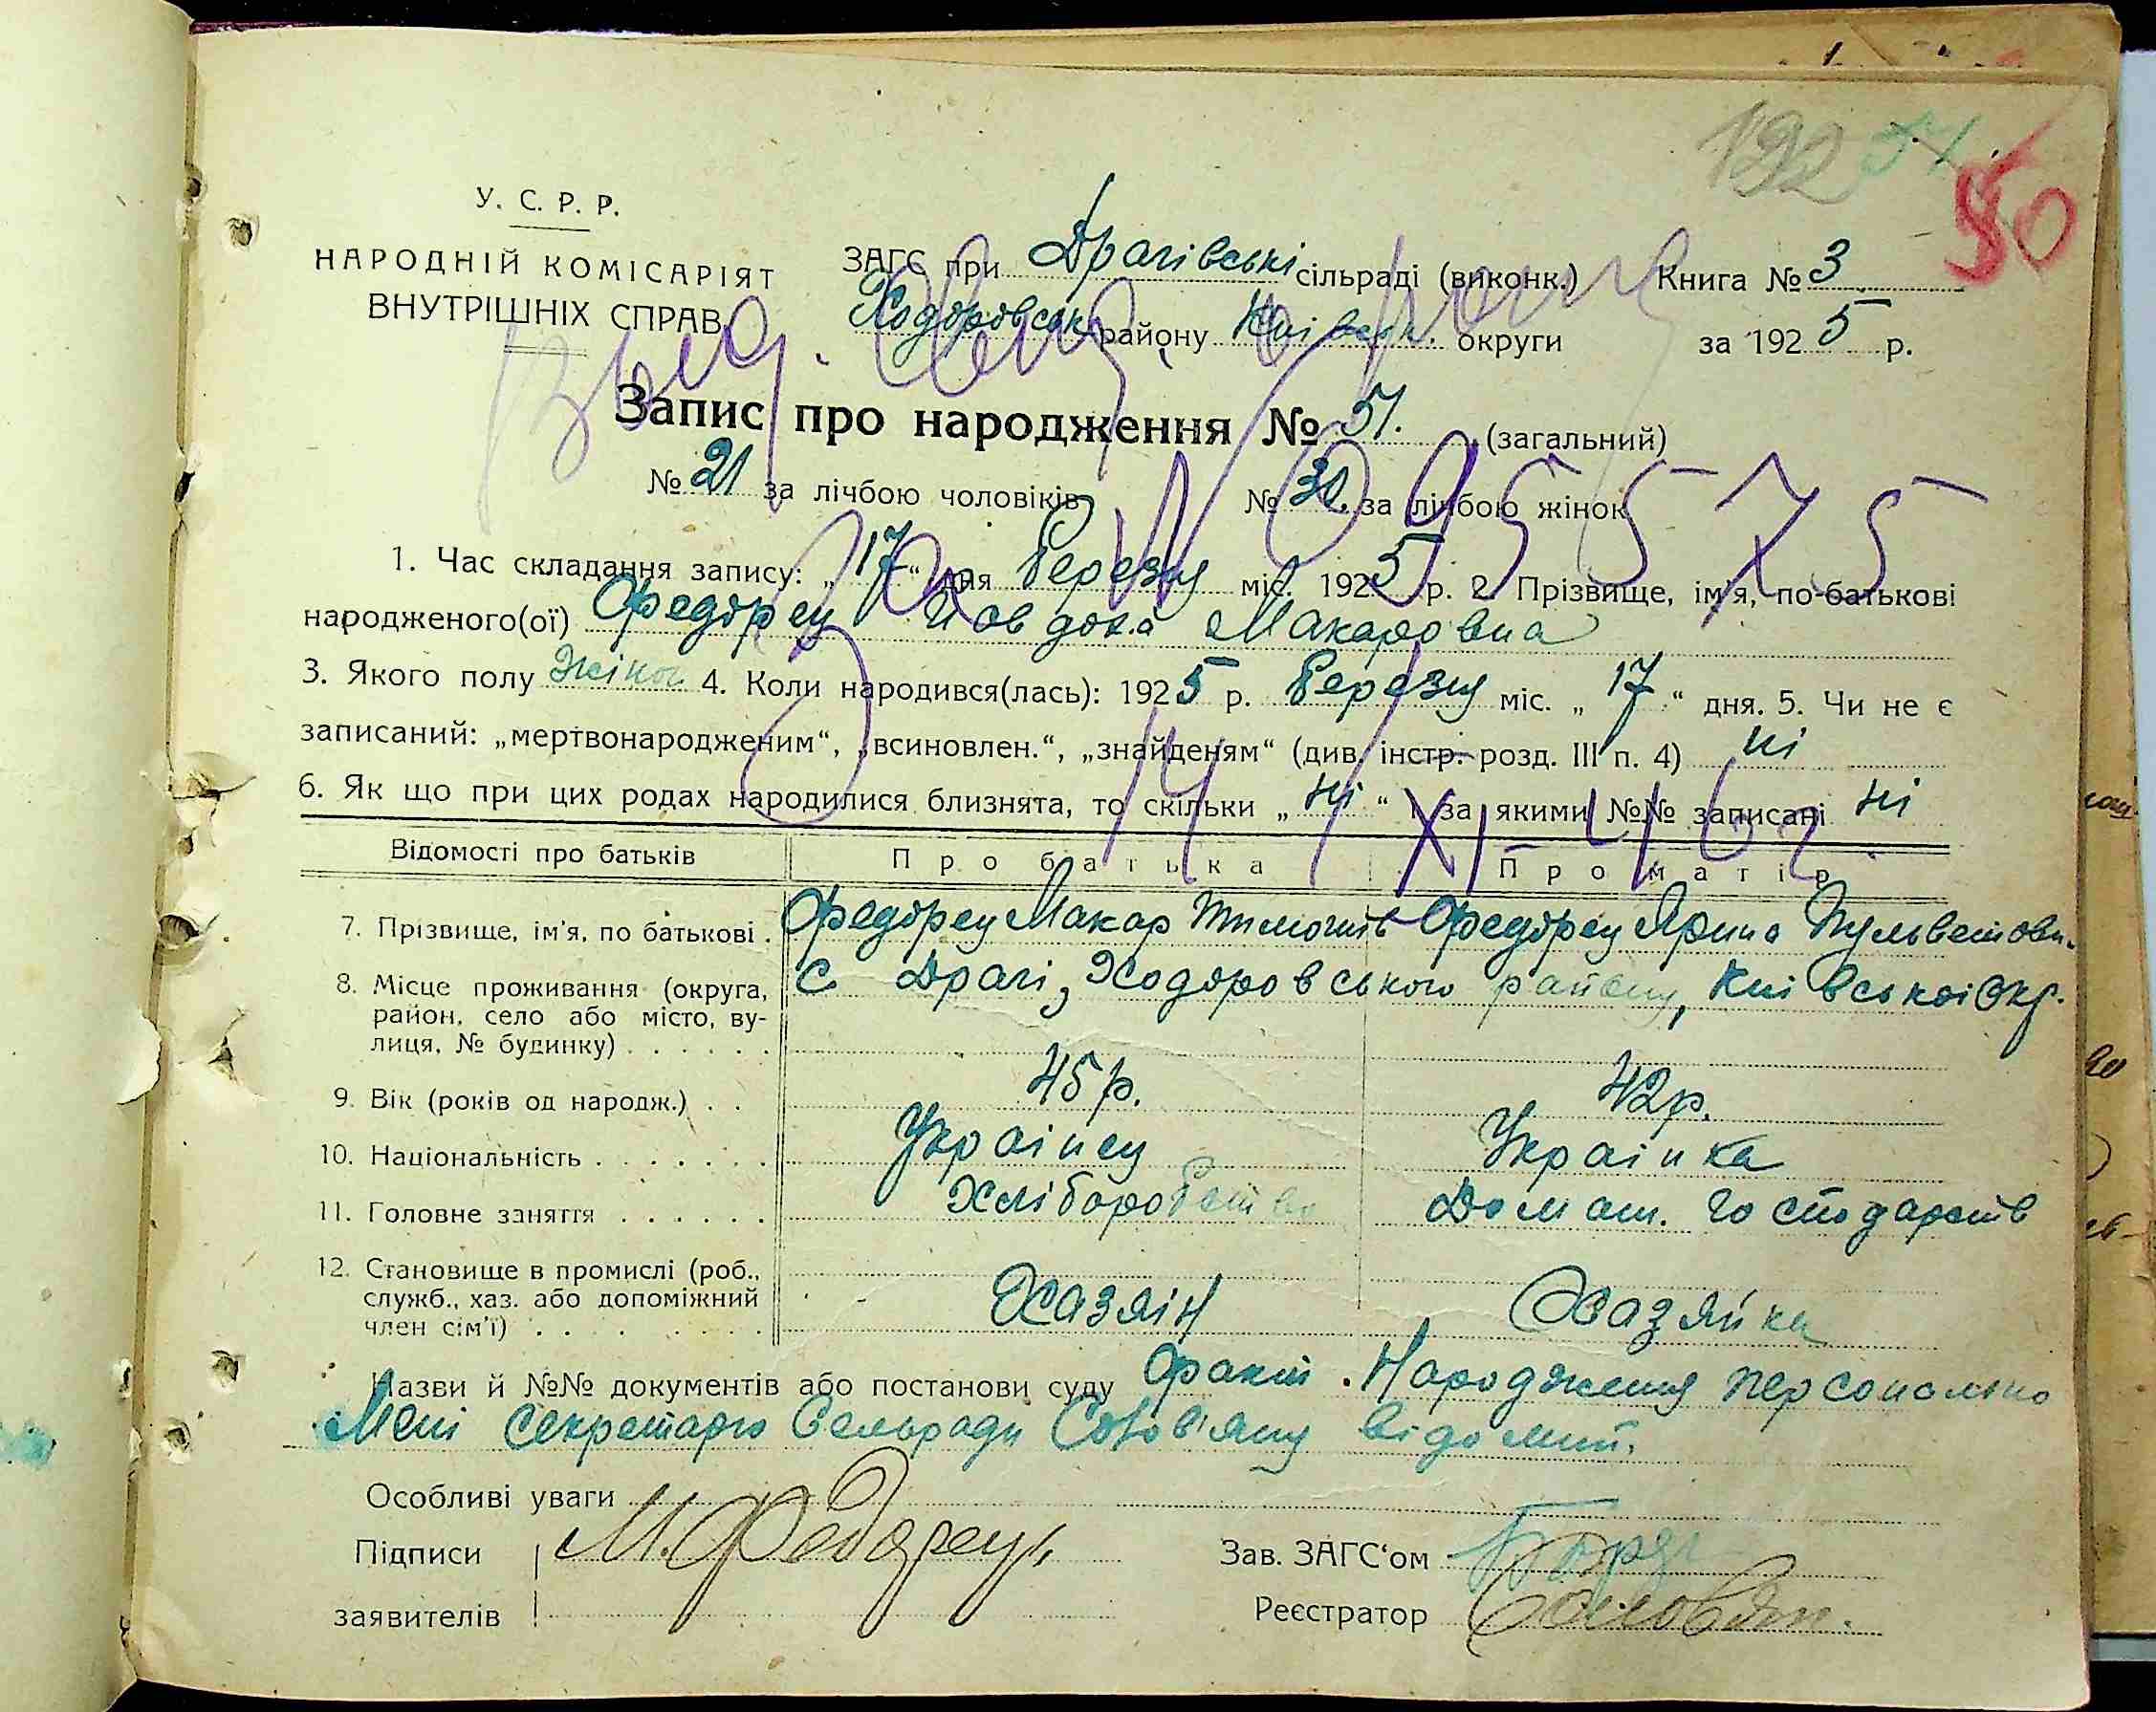 192 50
У. С. Р. Р.
НАРОДНІЙ КОМІСАРІЯТ
ВНУТРІШНІХ СПРАВ
ЗАГС при Драгівські сільраді (виконк.) Книга № 3
Ходоровськ району Київськ. округи за 1925 р.
Запис про народження № 51. (загальний)
№ 21 за лічбою чоловіків № 30. за лічбою жінок
1. Час складання запису: „17“ дня березня міс. 1925 р. 2. Прізвище, ім'я, по-батькові
народженого(ої) Федорец Йовдоха Макаровна
3. Якого полу жіноч 4. Коли народився(лась): 1925 р. березня міс. „17“ дня. 5. Чи не є
записаний: „мертвонародженим“, „всиновлен.“, „знайденям“ (див. інстр. розд. III п. 4) ні
6. Як що при цих родах народилися близнята, то скільки „ні“ і за якими №№ записані ні
Відомості про батьків Про батька Про матір
7. Прізвище, ім'я, по батькові . Федорец Макар Федорец Ярина
8. Місце проживання (округа, С Драгі, Ходоровського району, Київськоі Окр.
район, село або місто, ву-
лиця, № будинку) . . . . . .
9. Вік (років од народж.) . . 45 р. 42 р.
10. Національність . . . . . . . Украінец Украінка
11. Головне заняття . . . . . . Хліборобство Домаш. господарств
12. Становище в промислі (роб., Хазяін Хазяйка
служб., хаз. або допоміжний
член сім'ї) . . . . . . .
Назви й №№ документів або постанови суду Факт. Народження персонально
Мені Секретарю Сельради відомий.
Особливі уваги
Підписи М. Федорець. Зав. ЗАГС‘ом
заявителів Реєстратор